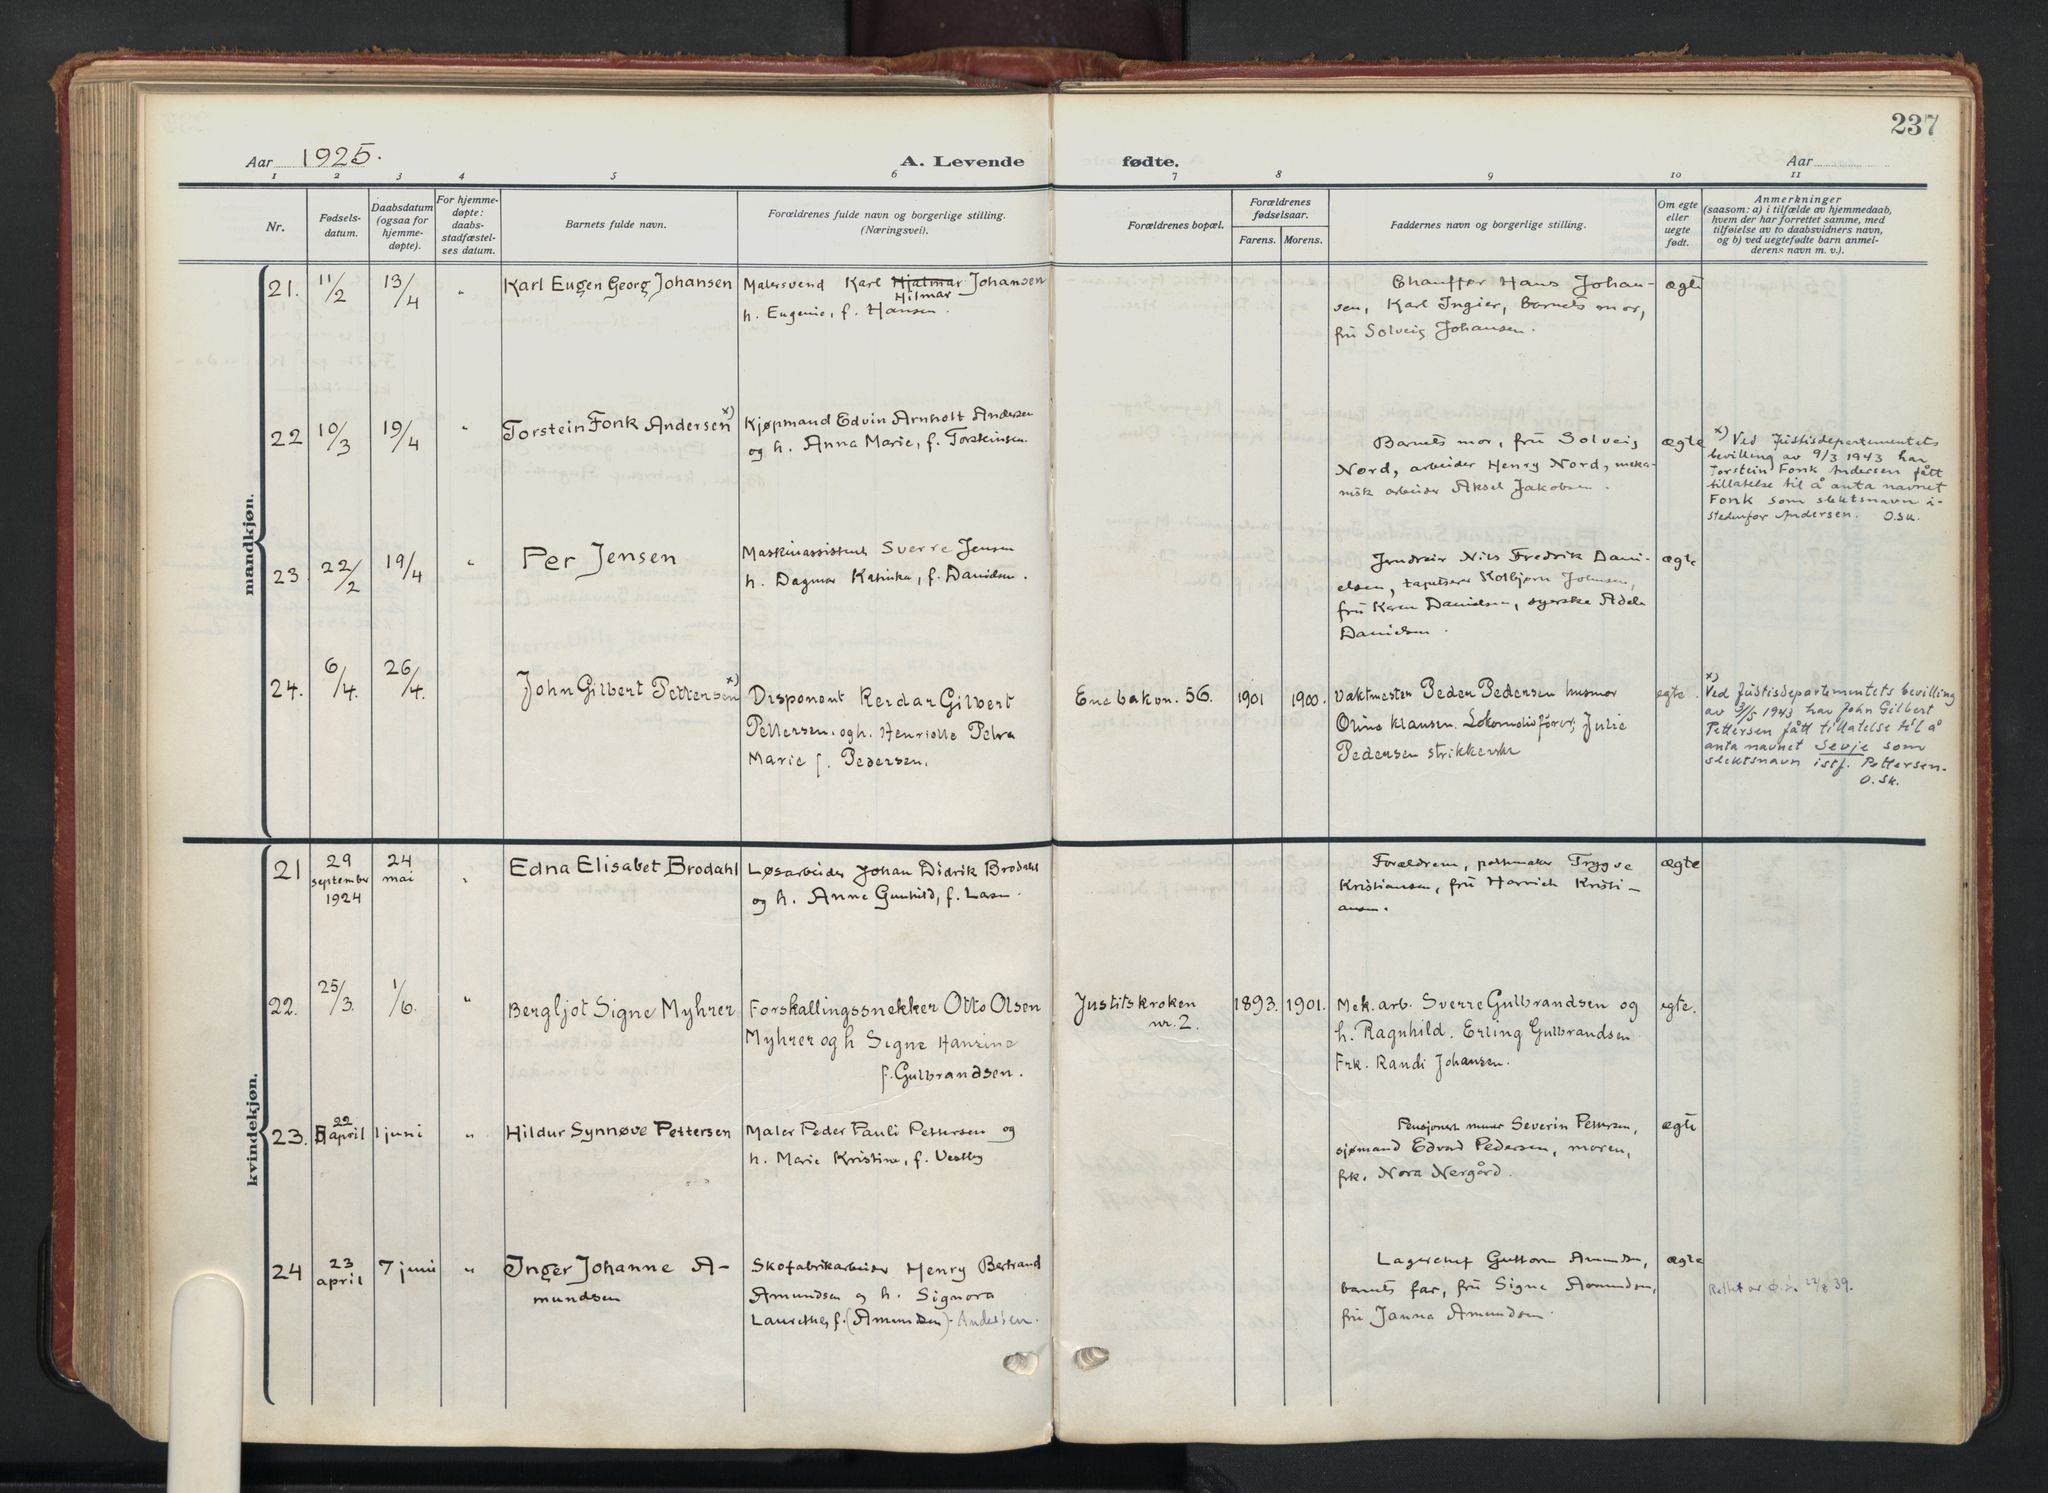 237
Aar 1925.
A. Levende fødte.
Aar
1 2 3 4 5 6 7 8 9 10 11
Nr.
Fødsels-
datum.
Daabsdatum
(ogsaa for
hjemme-
døpte).
For hjemme-
døpte:
daabs-
stadfæstel-
ses datum.
Barnets fulde navn.
Forældrenes fulde navn og borgerlige stilling.
(Næringsvei).
Forældrenes bopæl.
Forældrenes
fødselsaar.
Farens. Morens.
Faddernes navn og borgerlige stilling.
Om egte
eller
uegte
født.
Anmerkninger
(saasom: a) i tilfælde av hjemmedaab,
hvem der har forrettet samme, med
tilføielse av to daabsvidners navn,
og b) ved uegtefødte barn anmel-
derens navn m. v.).
mandkjøn.
21. 11/2 13/4 " Karl Eugen Georg Johansen
Malersvend Karl Hjalmar Johansen
Hilmar
h. Eugenie, f. Hansen.
Chauffør Hans Johan-
sen, Karl Ingier, barnets mor,
frü Solveig Johansen.
ægte
22 10/3 19/4 " Torstein Fonk Andersen x)
Kjøpmand Edvin Arnholt Andersen
og h. Anna Marie, f. Torstensen
Barnets mor, frü Solveig
Nord, arbeider Henry Nord, meka-
nisk arbeider Aksel Jakobsen.
ægte
x) Ved Jüstisdepartementets
bevilling av 9/3 1943 har
Torstein Fonk Andersen fått
tillatelse til å anta navnet
Fonk som slektsnavn i-
stedenfor Andersen. O.Sk.
23. 22/2 19/4 " Per Jensen
Maskinassistent Sverre Jensen
h. Dagmar Katinka, f. Danielsen.
Nils Fredrik Dani-
elsen, tapetserer Kolbjørn Johnsen,
frü Karen Danielsen, syerske Adele
Danielsen.
ægte
24. 6/4. 26/4. John Gilbert Pettersen x)
Disponent Reidar Gilbert
Pettersen. og h. Henriette Petra
Marie f. Pedersen.
Enebakvn. 56. 1901 1900.
Vaktmester Peder Pedersen husmor
Oline Klausen. Lokomotivfører, Julie
Pedersen strikkerske
egte.
x)
Ved Jüstisdepartementets bevilling
av 3/5 1943 har John Gilbert
Pettersen fått tillatelse til å
anta navnet Sevje som
slektsnavn istf. Pettersen.
O. Sk.
kvindekjøn.
21 29 september 1924 24 mai " Edna Elisabet Brodahl
Løsarbeider Johan Didrik Brodahl
og h. Anne Gunhild, f. Larsen.
Forældrene, Trygve
Kristiansen, frü Kristi-
ansen.
ægte
22. 25/3. 1/6. " Bergljot Signe Myhrer
Forskallingssnekker Otto Olsen
Myhrer og h Signe Hansine
f. Gulbrandsen.
Justitskroken
nr. 2.
1893. 1901.
Mek. arb. Sverre Gulbrandsen og
h. Ragnhild. Erling Gulbrandsen
Frk. Randi Johansen.
egte.
23. 22 april 1 juni " Hildur Synnøve Pettersen
Maler Peder Pauli Pettersen og
h. Marie Kristine, f. Vestby
Pensjonert murer Severin Pettersen,
sjømand Edvard Pedersen, moren,
frk. Nora Nergård.
ægte
24 23 april 7 juni " Inger Johanne A-
mundsen
Skofabrikarbeider Henry Bertrand
Amundsen og h. Signora
Laurethe, f. (Amundsen). Andersen.
Lagerchef Guttorm Amundsen,
barnets far, frü Signe Amundsen,
frü Janna Amundsen.
ægte
Rettet av 22/8 39.